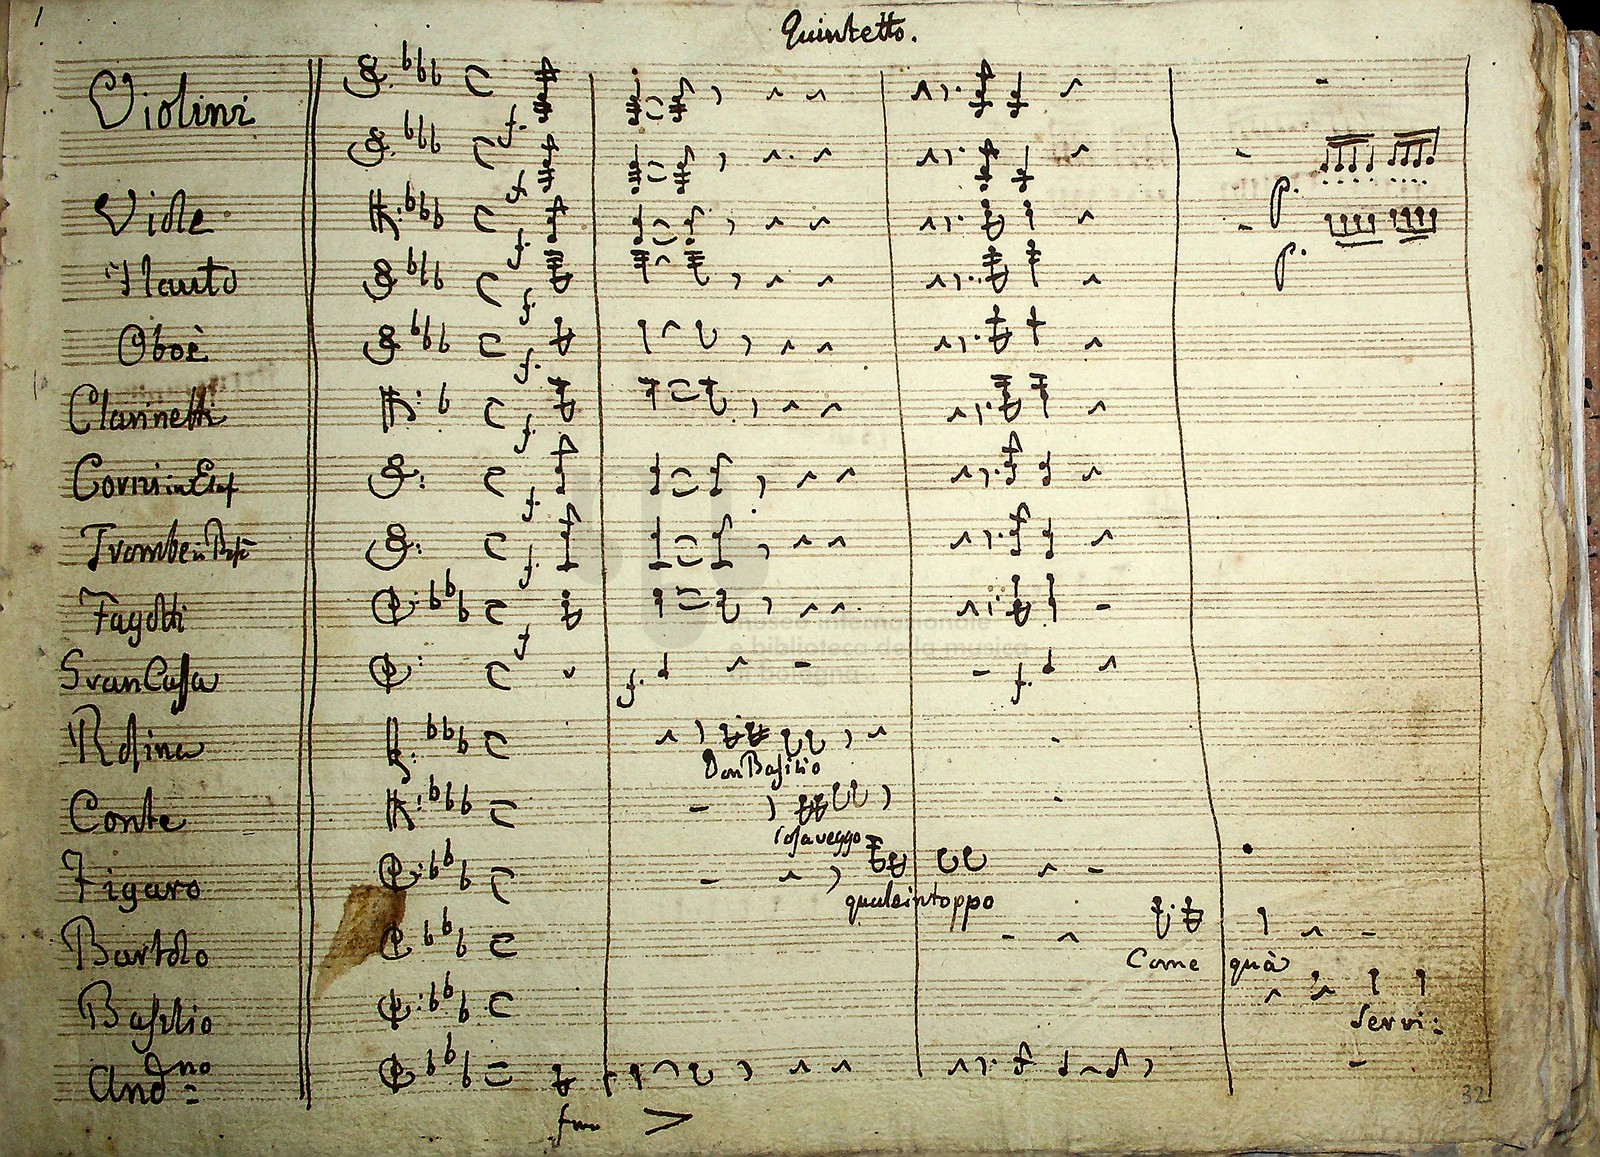 1
Quintetto.
Violini
Viole
Flauto
Oboè
Clarinetti
Corni in Elaf
Trombe in
Fagotti
museo internazionale
e biblioteca della musica
di bologna
Gran Cassa
Rosina
Don Basilio
Conte
Cosa veggo
Figaro
quale intoppo
Bartolo
Come quà
Basilio
Servi:
And.no
32